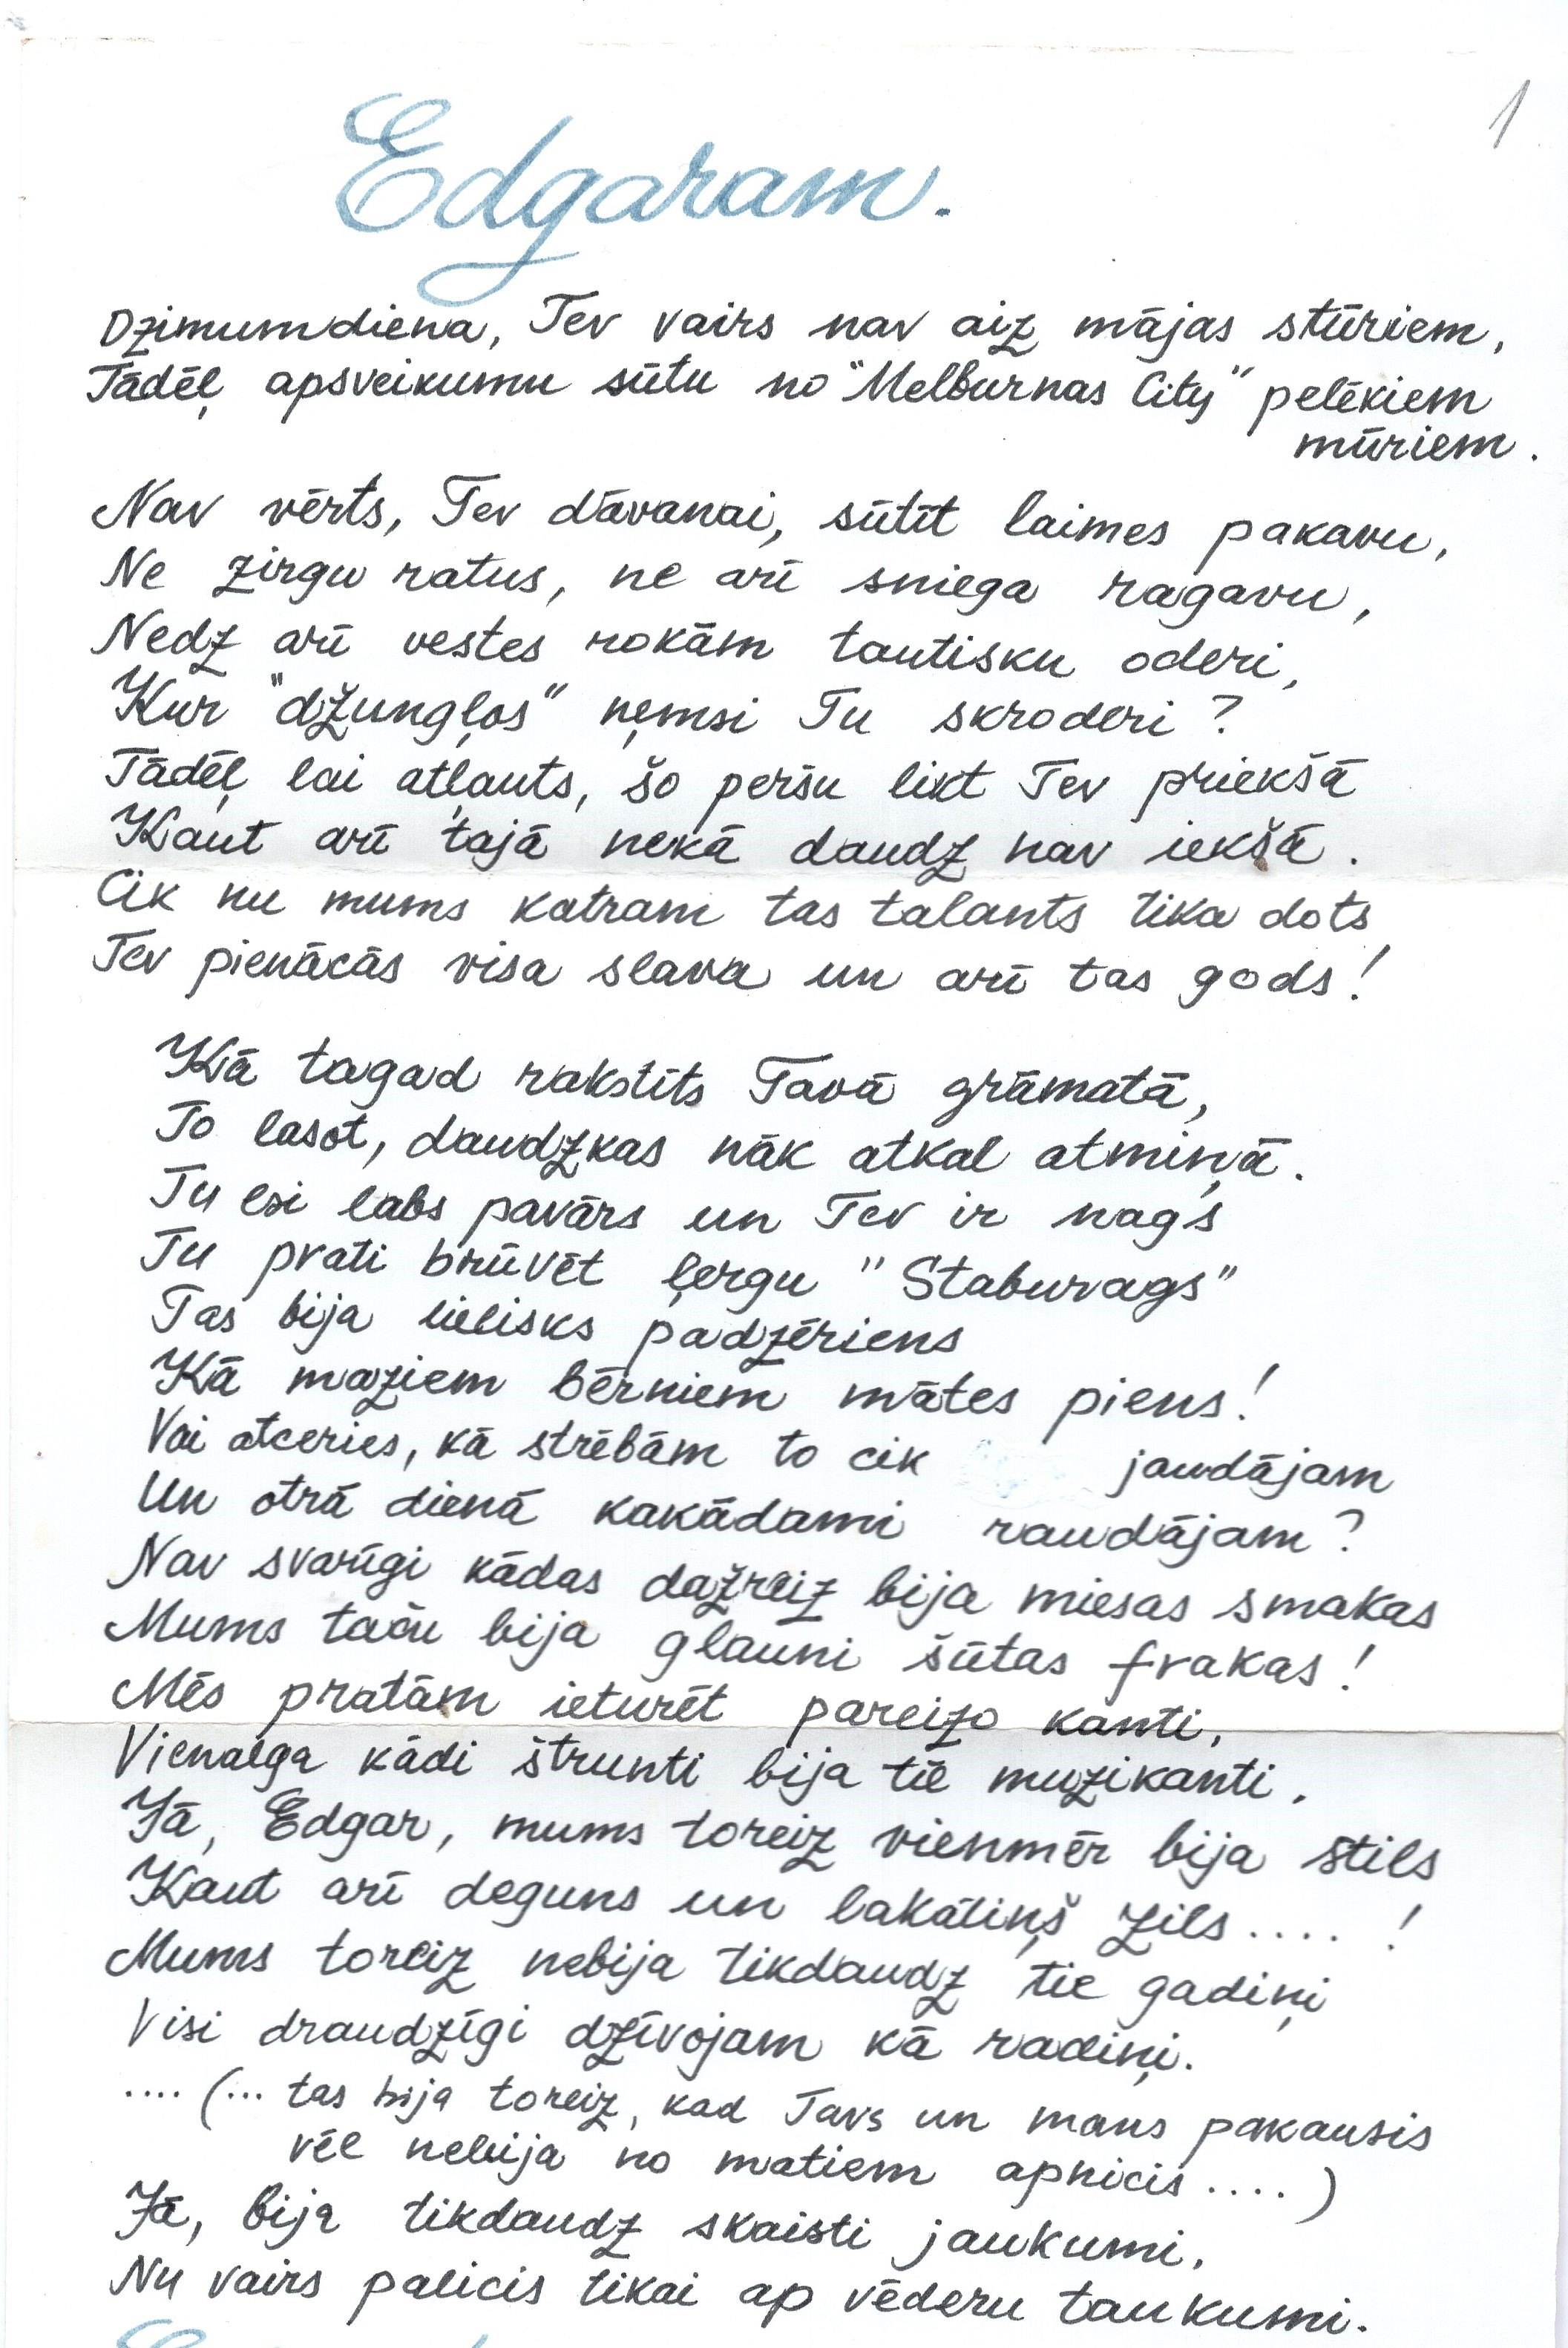 1
Edgaram.
Dzimumdiena, Tev vairs nav aiz mājas stūriem,
Tādēļ apsveikumu sūtu no "Melburnas City" pelēkiem
mūriem.
Nav vērts, Tev dāvanai, sūtīt laimes pakavu,
Ne zirgu ratus, ne arī sniega ragavu,
Nedz arī vestes rokām tautisku oderi,
Kur "džungļos" ņemsi Tu skroderi?
Tādēļ lai atļauts, šo peršu likt Tev priekšā
Kaut arī tajā nekā daudz nav iekšā.
Cik nu mums katram tas talants tika dots
Tev pienācās visa slava un arī tas gods!
Kā tagad rakstīts Tavā grāmatā,
To lasot, daudzkas nāk atkal atmiņā.
Tu esi labs pavārs un Tev ir nags
Tu prati brūvēt ļergu "Staburags"
Tas bija lielisks padzēriens
Kā maziem bērniem mātes piens!
Vai atceries, kā strēbām to cik jaudājam
Un otrā dienā kakādami raudājam?
Nav svarīgi kādas dažreiz bija miesas smakas
Mums taču bija glauni šūtas frakas!
Mēs pratām ieturēt pareizo kanti,
Vienalga kādi štrunti bija tie muzikanti.
Jā, Edgar, mums toreiz vienmēr bija stils
Kaut arī deguns un lakātiņš zils....!
Mums toreiz nebija tikdaudz tie gadiņi
Visi draudzīgi dzīvojam kā radiņi.
....(... tas bija toreiz, kad Tavs un mans pakausis
vēl nebija no matiem apnicis....)
Jā, bija tikdaudz skaisti jaukumi,
Nu vairs palicis tikai ap vēderu taukumi.